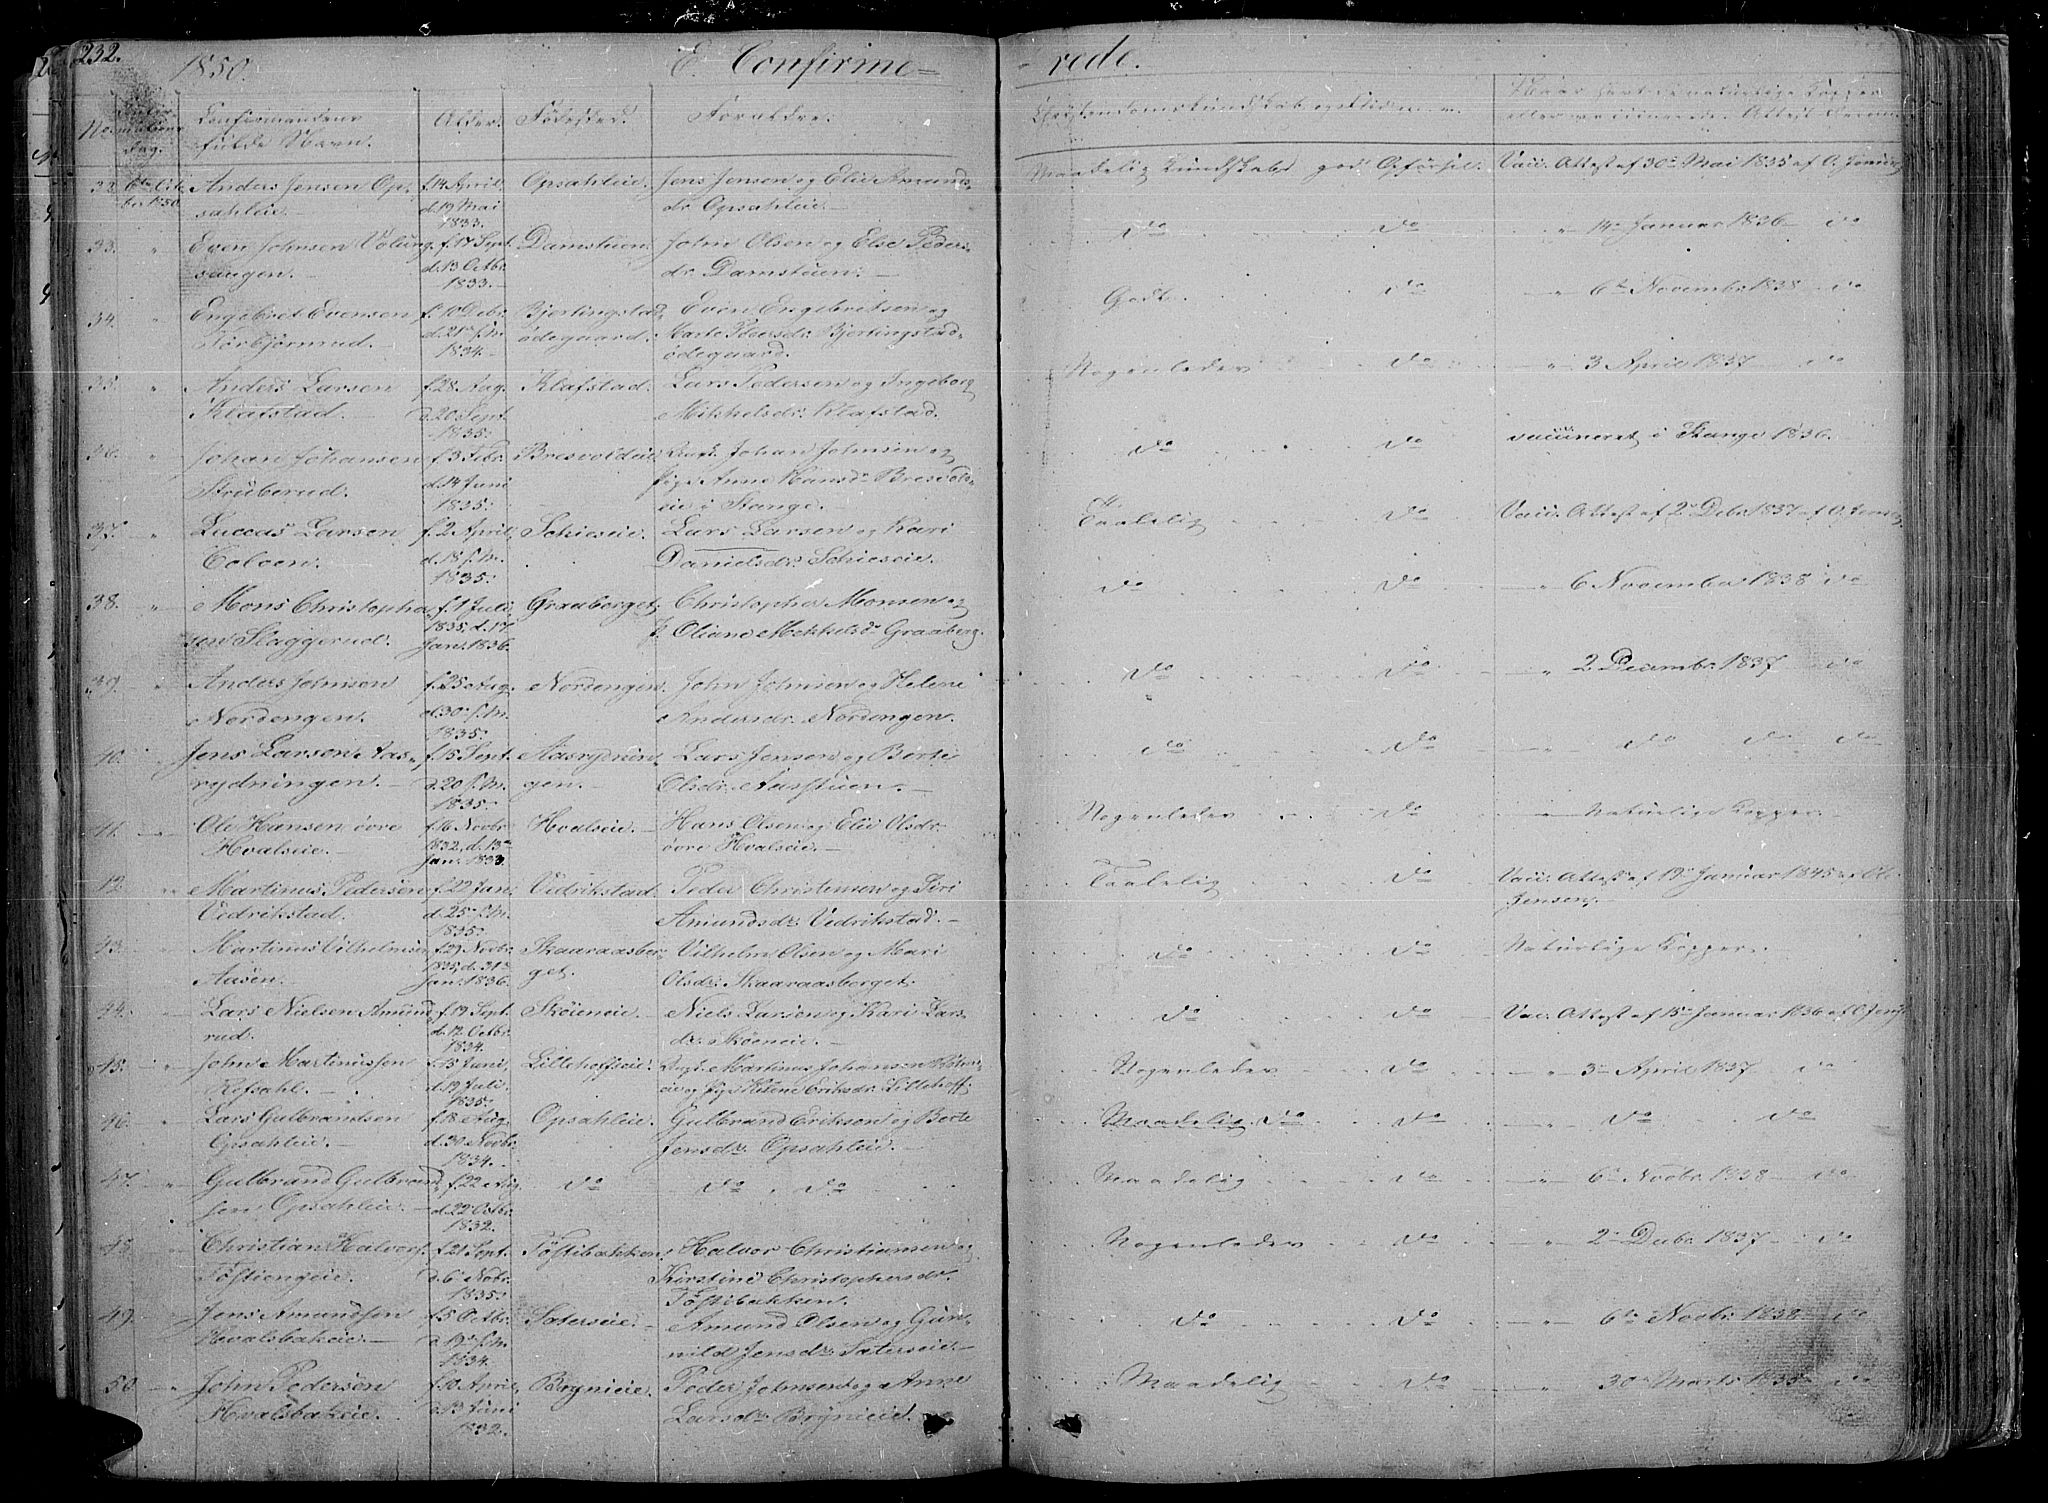 232.
1850.
E. Confirme=
=rede.
No.
Confirmandens
fulde Navn.
Alder.
Fødested.
Forældre.
Christendomskundskab og
Dag.
32 6te Octbr. 1850 Anders Jensen Op-
sahleie.
f. 14 April,
d. 19 Mai
1833.
Opsahleie.
Jens Jensen og Elie Amunds-
dr. Opsahleie.
Maadelig Kundskab god Opførsel.
Vacc. Attest af 30te Mai 1835 af O. Jensen
33. " Even Johnsen Volung
saugen.
f. 17 Sept.
d. 13 Octbr.
1833.
Damstuen.
John Olsen og Else Peders-
dr. Damstuen.
do
do
" 14de Januar 1836 do
34. " Engebret Evensen
Torbjørnrud.
f. 10 Debr.
d. 21de s. M.
1834.
Bjertingstad
ødegaard.
Even Engebretsen og
Marte Pedersdr. Bjertingstad-
ødegaard.
Godt
do
" 6te Novembr 1838 do
35. " Anders Larsen
Klafstad.
f. 28 Aug.
d. 20 Sept.
1835.
Klafstad.
Lars Pedersen og Ingeborg
Mikkelsdr. Klafstad.
Nogenledes
do
" 3 April 1837 do
36. " Johan Johansen
Struberud.
f. 3 Febr.
d. 14 Juni
1835.
Bresvoldeie.
Ungk. Johan Johnsen og
Pige Anne Hansdr. Bresvold-
eie i Stange.
do
do
vaccineret i Stange 1836.
37. " Luccas Larsen
Coloen.
f. 2 April,
d. 18 s. M.
1835.
Schieseie.
Lars Larsen og Kari
Danielsdr. Schieseie.
Taalelig
do
Vacc. Attest af 2de Debr. 1837 af O. Jensen
38. " Mons Christopher-
sen Slaggerud.
f. 1 Juli
1835, d. 17
Jan. 1836.
Graaberget.
Christopher Monsen og
P. Oliane Mikkelsdr. Graaberg.
do
do
" 6 November 1838 do
39. " Anders Johnsen
Nordengen.
f. 25 Aug.
d. 30 s. M.
1835.
Nordengen.
John Johnsen og Helene
Andersdr. Nordengen.
do
do
" 2 Decembr. 1837 do
40. " Jens Larsen Aas-
rydningen.
f. 15 Sept.
d. 20 s. M.
1835.
Aasrydnin-
gen.
Lars Jensen og Berte
Olsdr. Aasstuen.
do
do
" do do do
41. " Ole Hansen øvre
Hvalseie.
f. 16 Novbr.
1832, d. 13de
Jan. 1833.
Hvalseie.
Hans Olsen og Elie Olsdr.
øvre Hvalseie.
Nogenledes
do
" Naturlige Kopper.
42. " Martinus Pedersen
Vedrikstad.
f. 22 Juni
d. 25 s. M.
1835.
Vedrikstad.
Peder Christensen og Siri
Amundsdr. Vedrikstad.
Taalelig
do
Vacc. Attest af 19de Januar 1845 af Ole
Jensen.
43. " Martinus Vilhelmsen
Ausen.
f. 29 Novbr.
1835, d. 31te
Jan. 1836.
Skaaraasber-
get.
Vilhelm Olsen og Mari
Olsdr. Skaaraasberget.
do
do
Naturlige Kopper.
44. " Lars Nielsen Amund-
rud.
f. 19 Sept.
d. 12 Octbr.
1834.
Skøieneie.
Niels Larsen og Kari Lars-
dr. Skøieneie.
do
do
Vacc. Attest af 15de Januar 1836 af O. Jensen
45. " John Martinussen
Refsahl.
f. 15 Juni,
d. 19 Juli.
1835.
Lillehoffseie.
Ungk. Martinus Johansen
eie og Pige Helene Eriksdr. Lillehoff-
Nogenledes
do
" 3de April 1837 do
46. " Lars Gulbrandsen
Opsahleie.
f. 18 Aug.
d. 30 Novbr.
1834.
Opsahleie.
Gulbrand Eriksen og Berte
Jensdr. Opsahleie.
Maadelig do
do
" do do
47. " Gulbrand Gulbrand-
sen Opsahleie.
f. 22 Aug.
d. 22 Octbr.
1832.
do
do do
Maadelig
do
" 6te Novbr. 1838 do
48. " Christian Halvors.
Tøstiengeie.
f. 21 Sept.
d. 6 Novbr.
1835.
Tøstibakken.
Halvor Christiansen og
Kirstine Christophersdr.
Tøstibakken.
Nogenledes
do
" 2de Debr. 1837 do
49. " Jens Amundsen
Hvalsbakeie.
f. 5 Octbr.
d. 19 s. M.
1834.
Saterseie.
Amund Olsen og Gun-
nild Jensdr. Saterseie.
do
do
" 6te Novbr. 1838 do
50. " John Pedersen
Hvalsbakeie.
f. 10 April,
d. 13 Juni
1832.
Brynieie.
Peder Johnsen og Anne
Larsdr. Brynieie.
Maadelig
do
" 30te Marts 1835 do